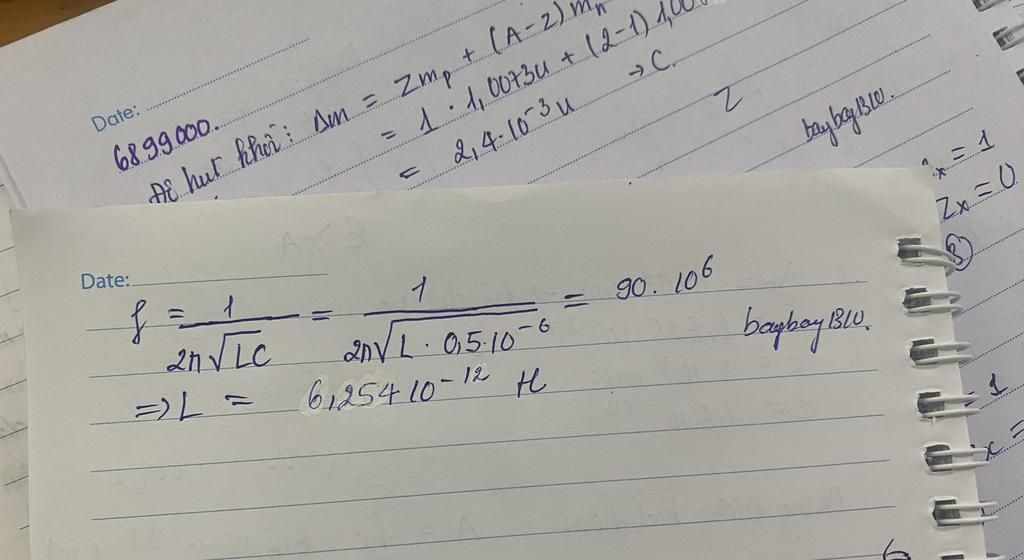 Date:
6899000.
Độ hụt khối: Δm = Zmp + (A-Z)mn
= 1 . 1,0073u + (2-1) 1,00
= 2,4.10^-3 u → C.
Z
baybay1310.
x = 1
Zx = 0
B
Date:
f = 1/(2π√LC) = 1/(2π√(L . 0,5.10^-6)) = 90. 10^6
baybay1310.
=> L = 6,254 10^-12 H
= 1
x =